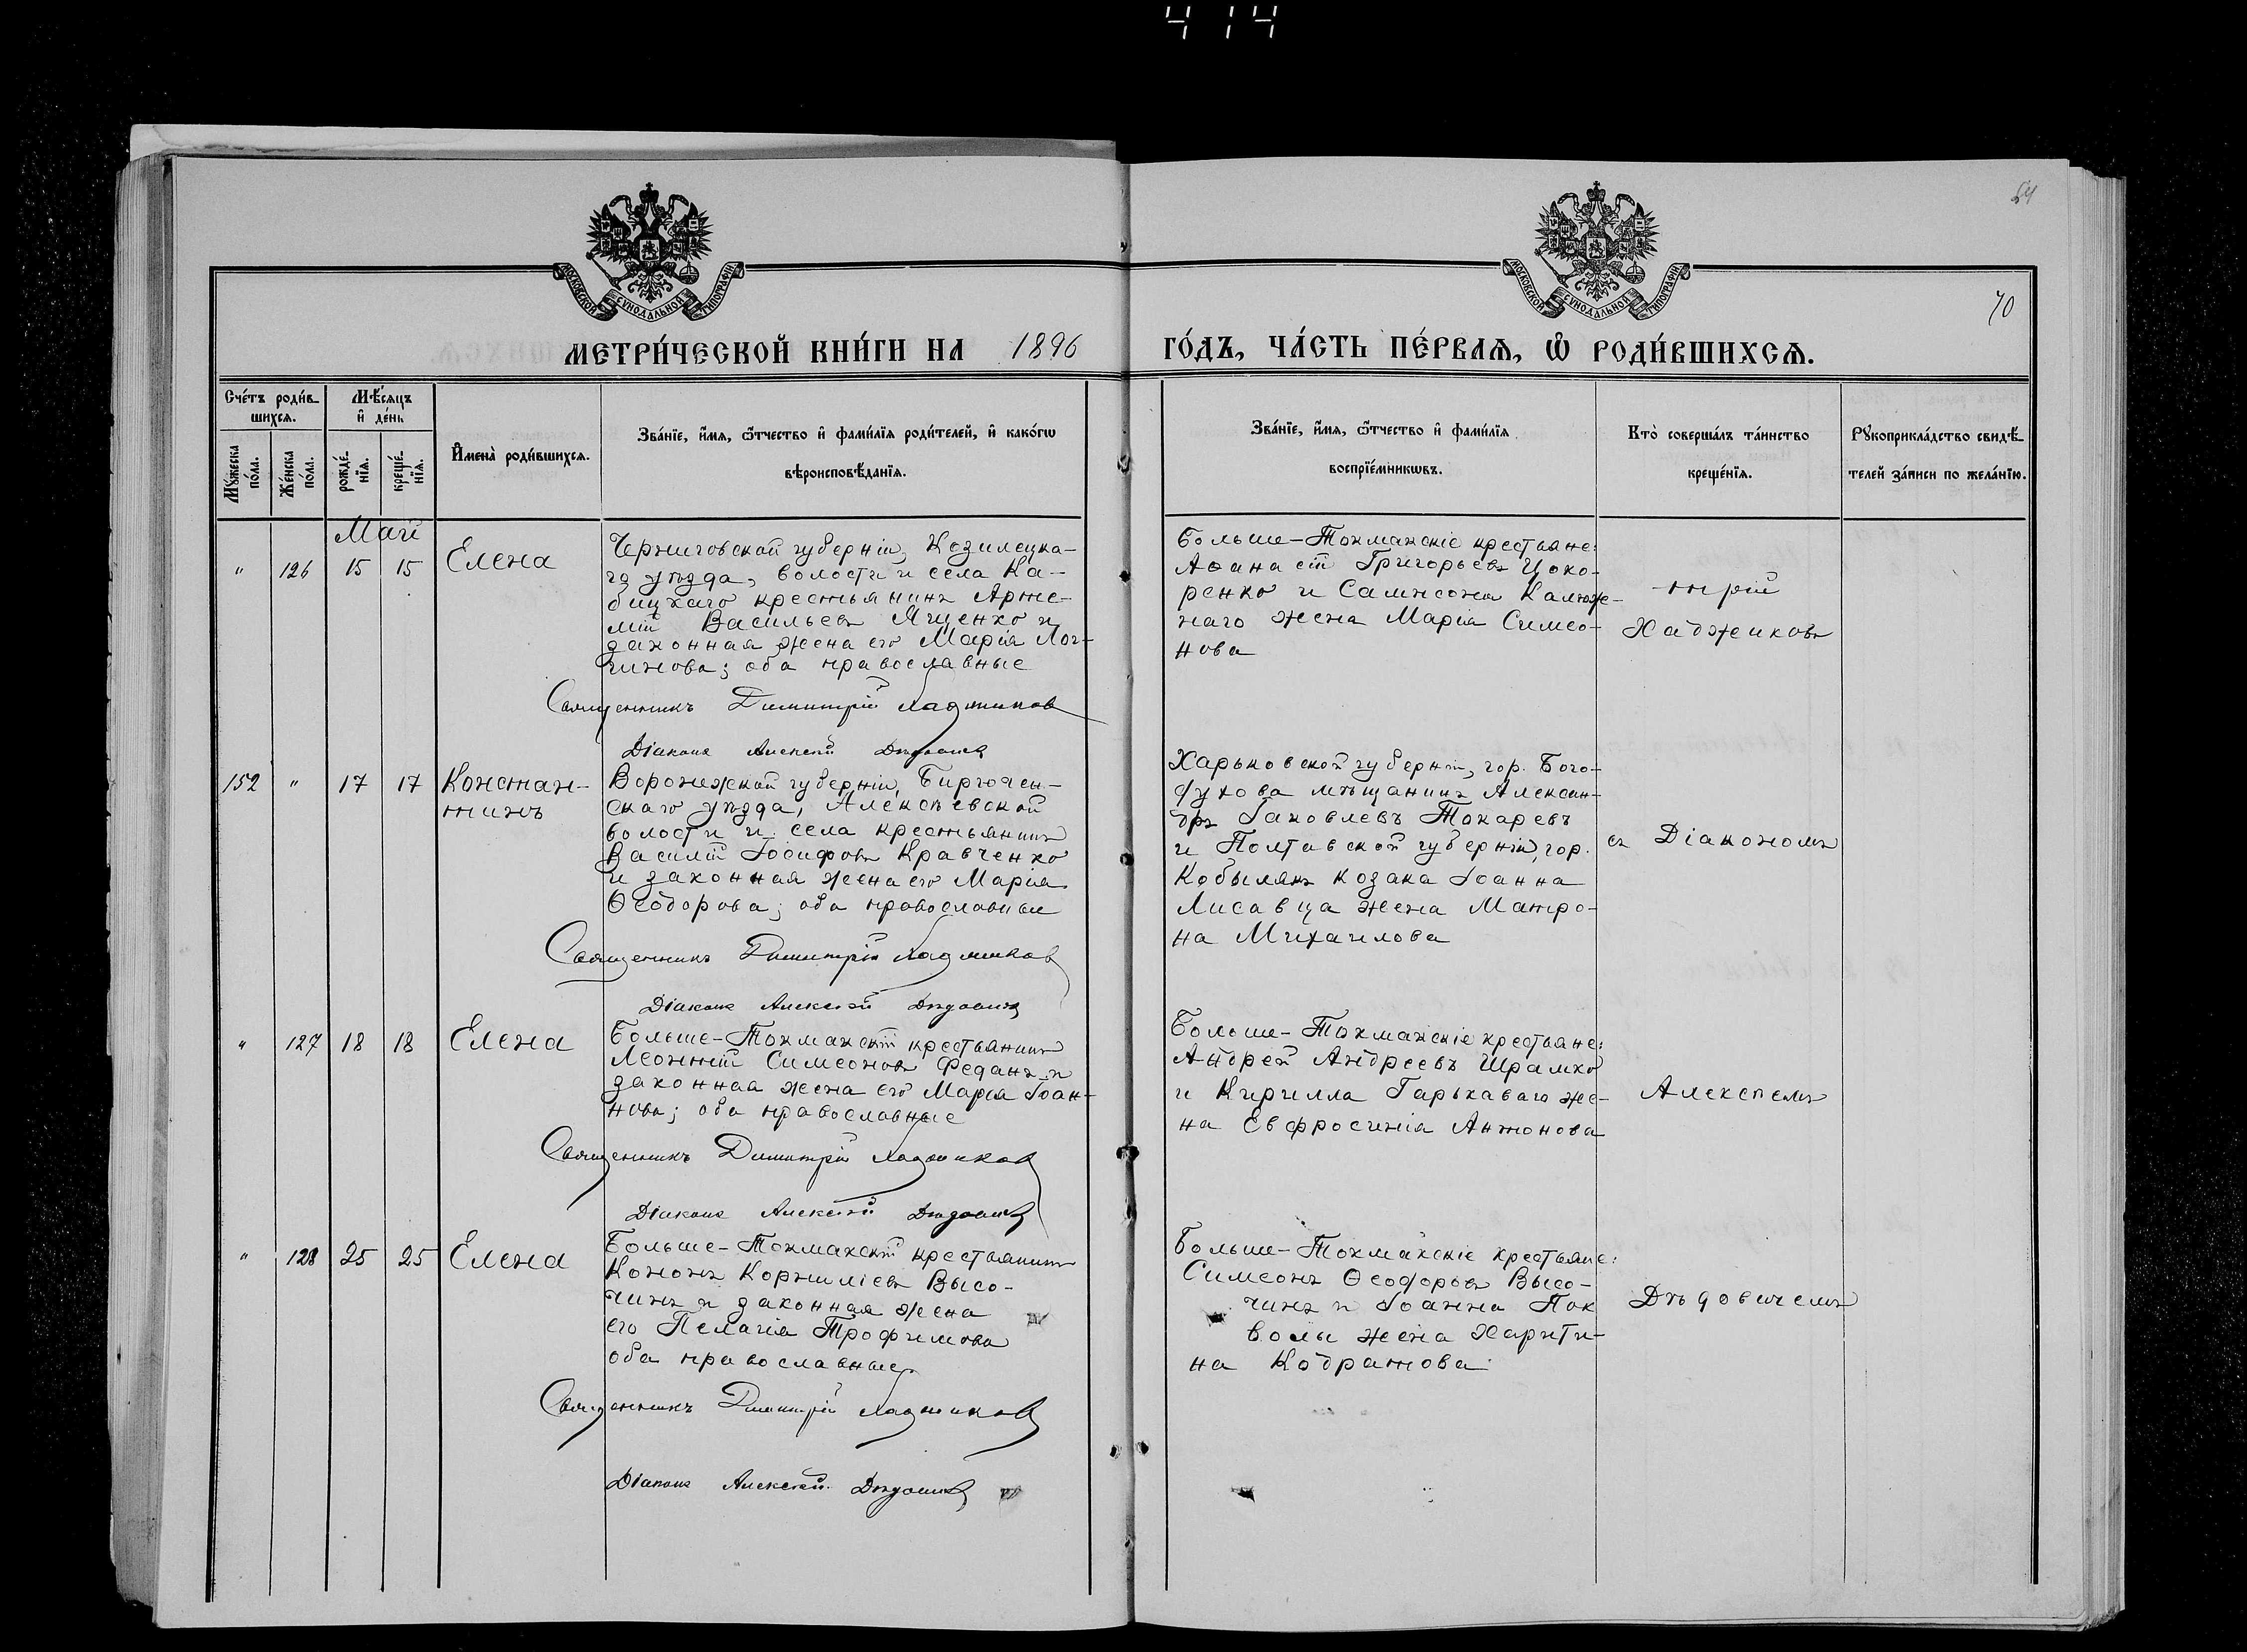 414
54
70
МОСКОВСКОЙ СУНОДАЛЬНОЙ ТИПОГРАФІИ
МОСКОВСКОЙ СУНОДАЛЬНОЙ ТИПОГРАФІИ
МЕТРИ́ЧЕСКОЙ КНИ́ГИ НА 1896 ГО́ДЪ, ЧА́СТЬ ПЕ́РВАѦ, Ѡ҆ РОДИ́ВШИХСѦ.
Сче́тъ роди́в-
шихсѧ.
Мѣ́сѧцъ
и҆ де́нь
Мꙋ́жеска
по́ла.
Же́нска
по́ла.
рожде́-
нїѧ.
креще́-
нїѧ.
И҆мена̀ роди́вшихсѧ.
Зва́нїе, и҆́мѧ, ѻ҆́тчество и҆ фами́лїѧ роди́телей, и҆ како́гѡ
вѣроисповѣ́данїѧ.
Зва́нїе, и҆́мѧ, ѻ҆́тчество и҆ фами́лїѧ
воспрїе́мникѡвъ.
Кто̀ соверша́лъ та́инство
креще́нїѧ.
Рꙋкоприкла́дство свидѣ́-
телей за́писи по жела́нїю.
Май
" 126 15 15 Елена
Черниговской губерніи, Козелецка-
го уѣзда, волости и села Ка-
бицкаго крестьянинъ Арте-
мій Васильевъ Ященко и
законная жена его Марія Лог-
гинова; оба православные
Священникъ Димитрій Хаджиновъ
Діаконъ Алексѣй Дѣдовичъ
Больше-Токмакскіе крестьяне:
Аѳанасій Григорьевъ Цоко-
ренко и Сампсона Калюж-
наго жена Марія Симео-
нова
-митрій
Хаджиновъ
152 " 17 17 Констан-
тинъ
Воронежской губерніи, Бирючен-
скаго уѣзда, Алексѣевской
волости и села крестьянинъ
Василій Іосифовъ Кравченко
и законная жена его Марія
Ѳеодорова; оба православные
Священникъ Димитрій Хаджиновъ
Діаконъ Алексѣй Дѣдовичъ
Харьковской губерніи, гор. Бого-
духова мѣщанинъ Алексан-
дръ Іаковлевъ Токаревъ
и Полтавской губерніи, гор.
Кобылякъ козака Іоанна
Лисавца жена Матро-
на Михаилова
съ Діакономъ
" 127 18 18 Елена
Больше-Токмакскій крестьянинъ
Леонтій Симеоновъ Феданъ и
законная жена его Марія Іоан-
нова; оба православные
Священникъ Димитрій Хаджиновъ
Діаконъ Алексѣй Дѣдовичъ
Больше-Токмакскіе крестьяне:
Андрей Андреевъ Шрамко
и Кирилла Гарькаваго же-
на Евфросинія Антонова
Алексѣемъ
" 128 25 25 Елена
Больше-Токмакскій крестьянинъ
Кононъ Корниліевъ Высо-
чинъ и законная жена
его Пелагія Трофимова
оба православные
Священникъ Димитрій Хаджиновъ
Діаконъ Алексѣй Дѣдовичъ
Больше-Токмакскіе крестьяне:
Симеонъ Ѳеодоровъ Высо-
чинъ и Іоанна
жена Харити-
на Кодратова
Дѣдовичемъ